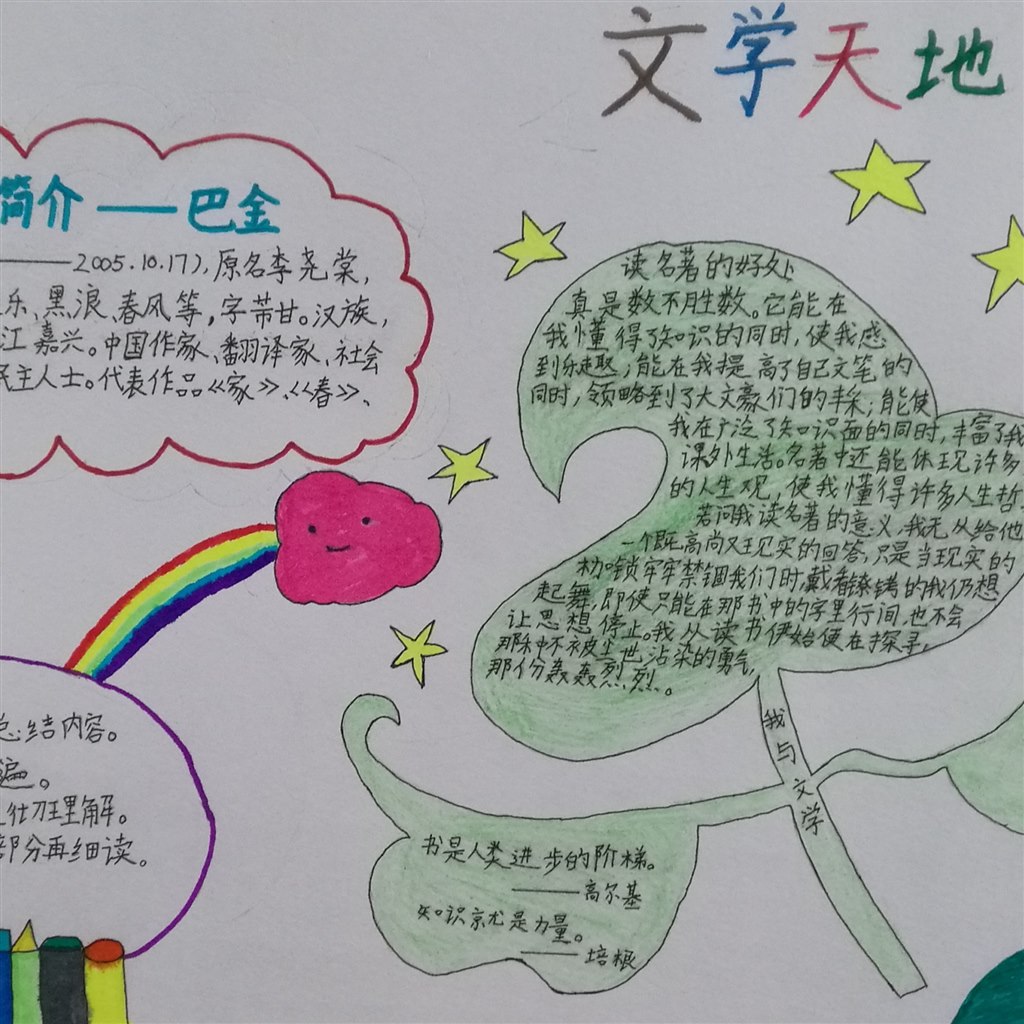 文学天地
简介——巴金
——2005.10.17),原名李尧棠,
乐、黑浪、春风等,字芾甘。汉族,
江嘉兴。中国作家、翻译家、社会
民主人士。代表作品《家》、《春》、
读名著的好处
真是数不胜数。它能在
我懂得了知识的同时,使我感
到乐趣;能在我提高了自己文笔的
同时,领略到了大文豪们的丰采;能使
我在广泛了知识面的同时,丰富了我
课外生活。名著中还能体现许多
的人生观,使我懂得许多人生哲
若问我读名著的意义,我无从给他
一个既高尚又现实的回答,只是当现实的
枷锁牢牢禁锢我们时,戴着镣铐的我仍想
起舞,即使只能在那书中的字里行间,也不会
让思想停止。我从读书伊始便在探寻,
那种不被尘世沾染的勇气,
那份轰轰烈烈。
总结内容。
遍。
仔细理解。
部分再细读。
我与文学
书是人类进步的阶梯。
——高尔基
知识就是力量。
——培根